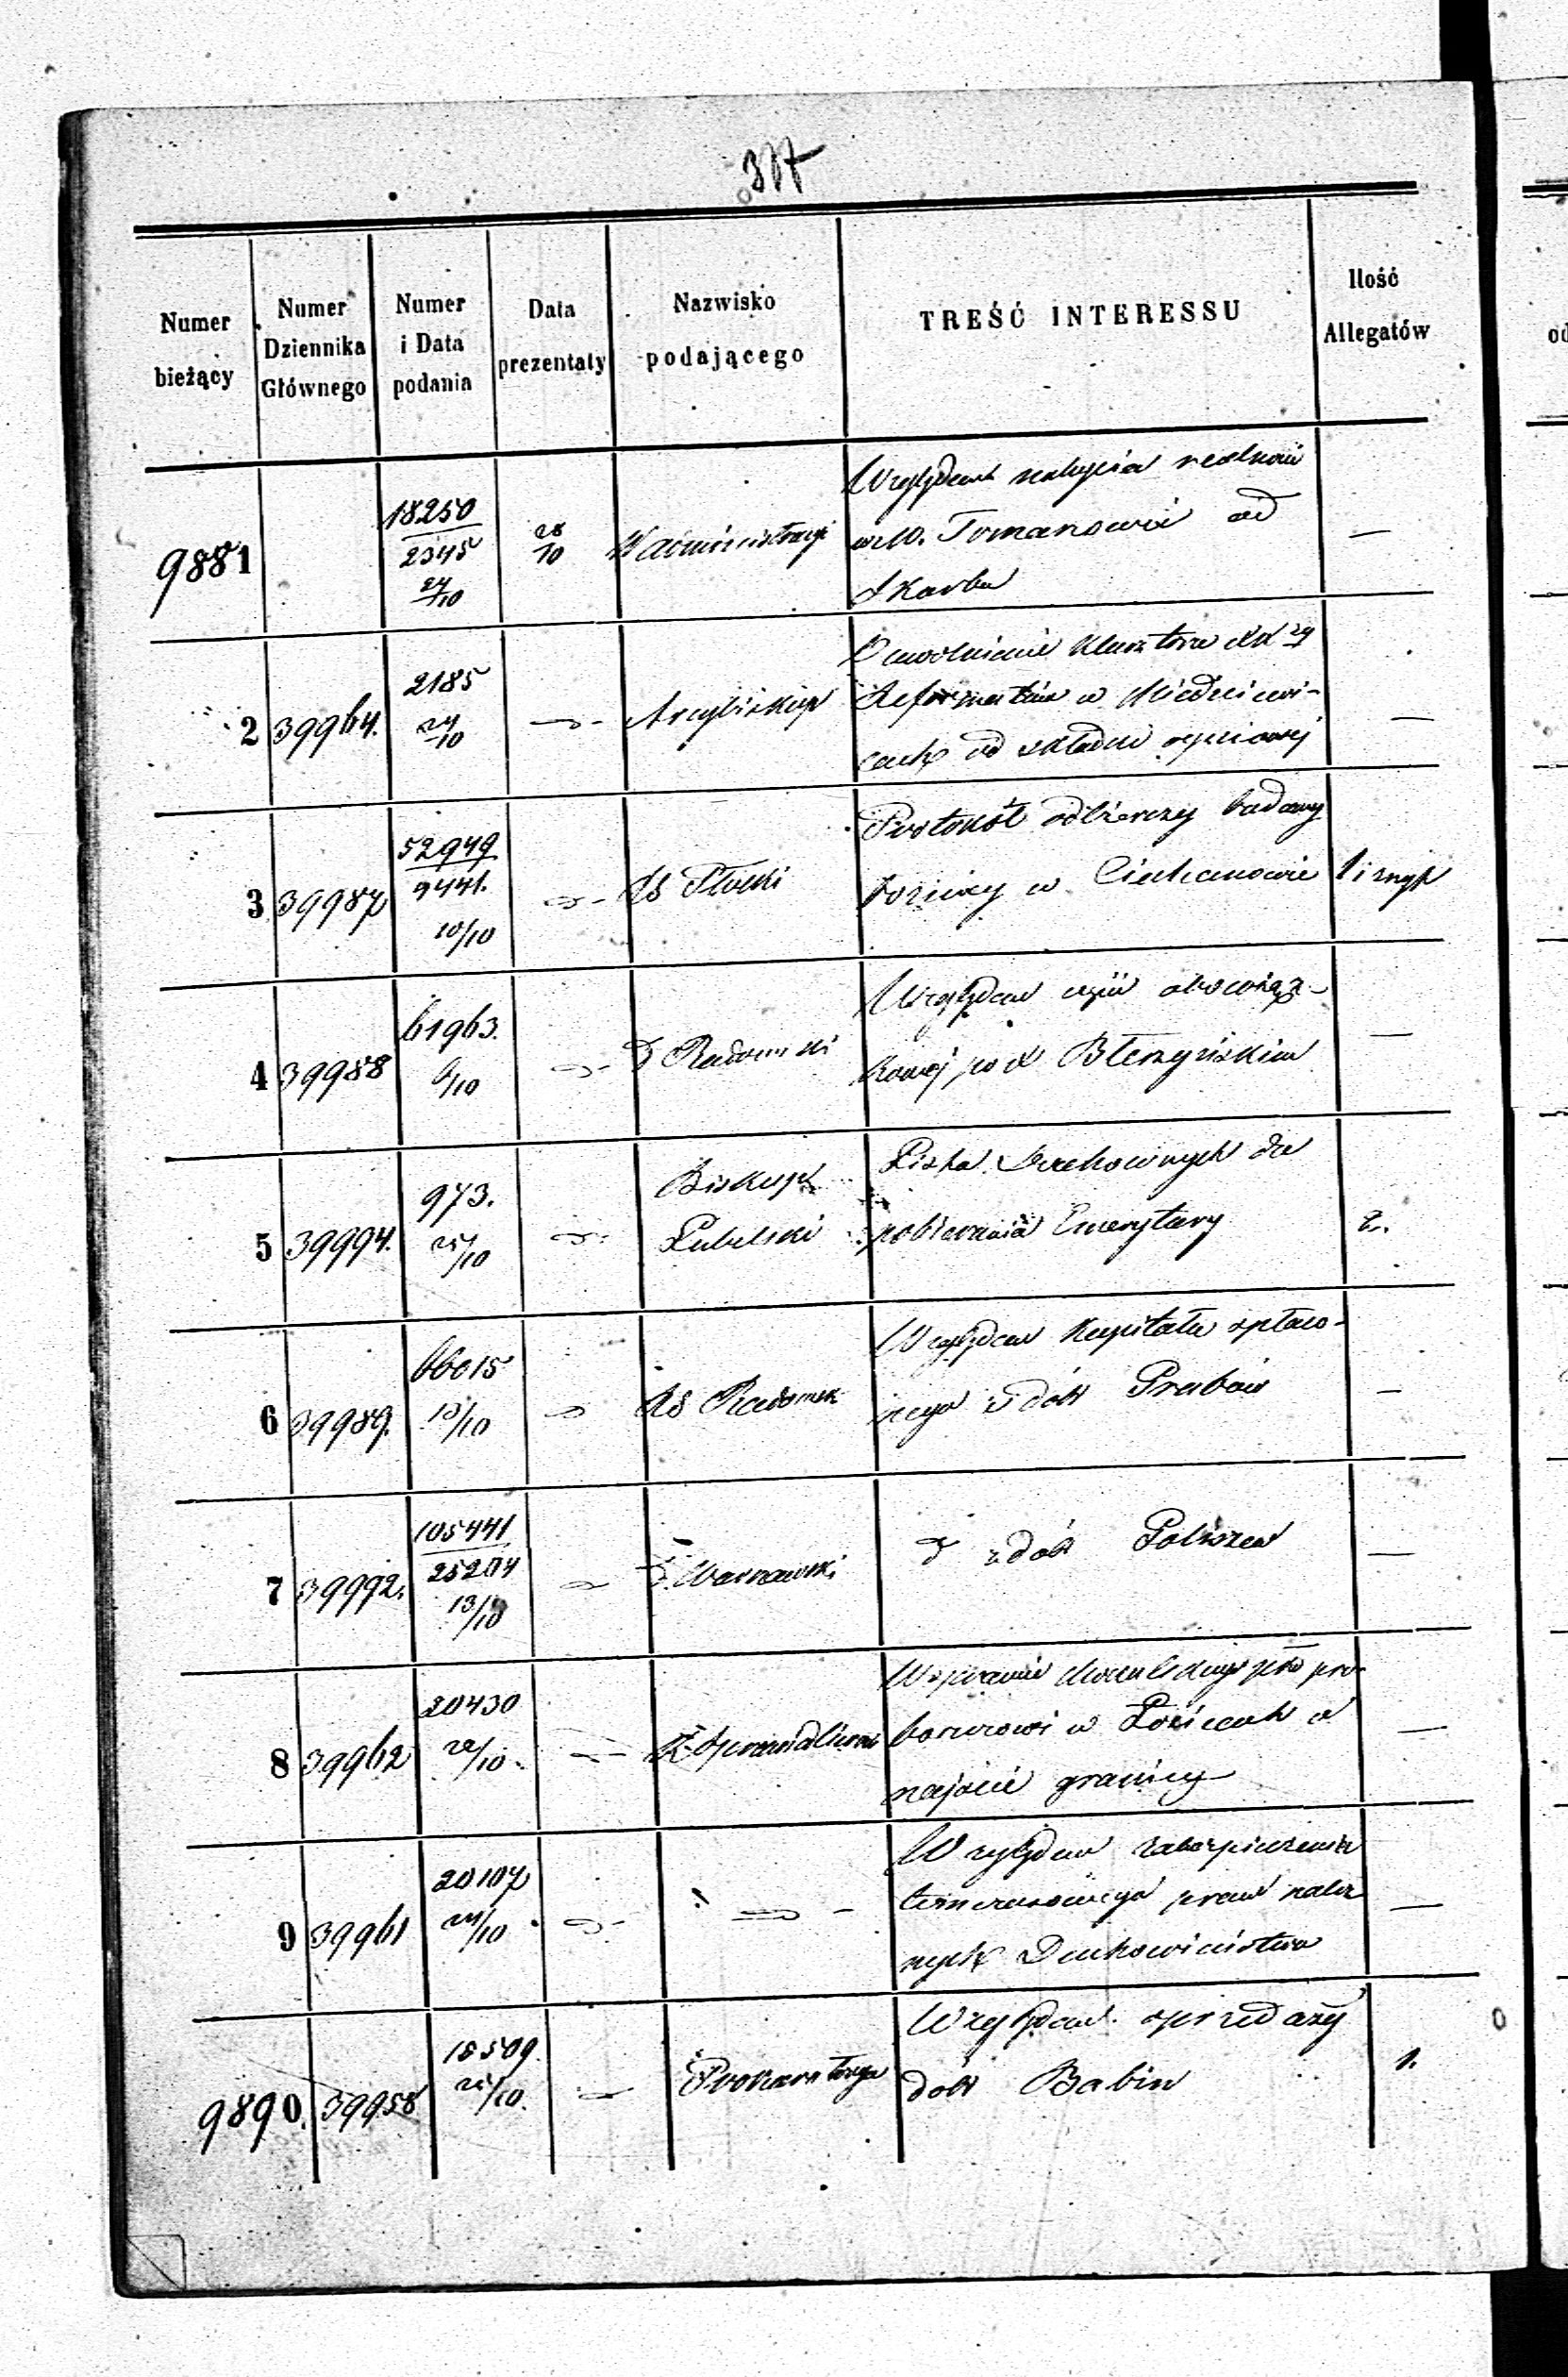 317
Numer bieżący
Numer Dziennika Głównego
Numer i Data podania
Data prezentaty
Nazwisko podającego
TREŚĆ INTERESSU
Ilość Allegatów
9881
18250
2345
24/10
28/10
W administracyi
Względem nabycia realności
w M. Tomanowie od
Skarbu
—
2
39964.
2185
24/10
Arcybiskup
Uwolnienie Klasztoru XX
Reformatów w Miedniewi-
cach od składki ogniowej
—
3
39987
52949
9441.
10/10
RG Płocki
Protokół odbierczy budowy
bożnicy w Ciechanowie
1 i
4
39988
61963.
6/10
D Radomski
Względem obowiąz-
kowej po X
—
5
39994.
973.
25/10
Biskup
Lubelski
Lista Duchownych do
pobierania Emerytury
2.
6
39989.
66015
13/10
RG Radomsk
Względem Kapitału spłaco-
nego z dóbr Grabów
—
7
39992.
105441
25204
13/10
D Warszawski
D z dóbr
—
8
39962
20430
22/10
K Sprawiedliwości
W sprawie pko pro-
boszczowi w Łosicach o
najście granicy
—
9
39961
20107
24/10
Względem zabezpieczenia
tymczasowego praw
nych Duchowieństwa
—
9890.
39958
18509.
25/10.
Prokuratorya
Względem sprzedaży
dóbr Babin
1.